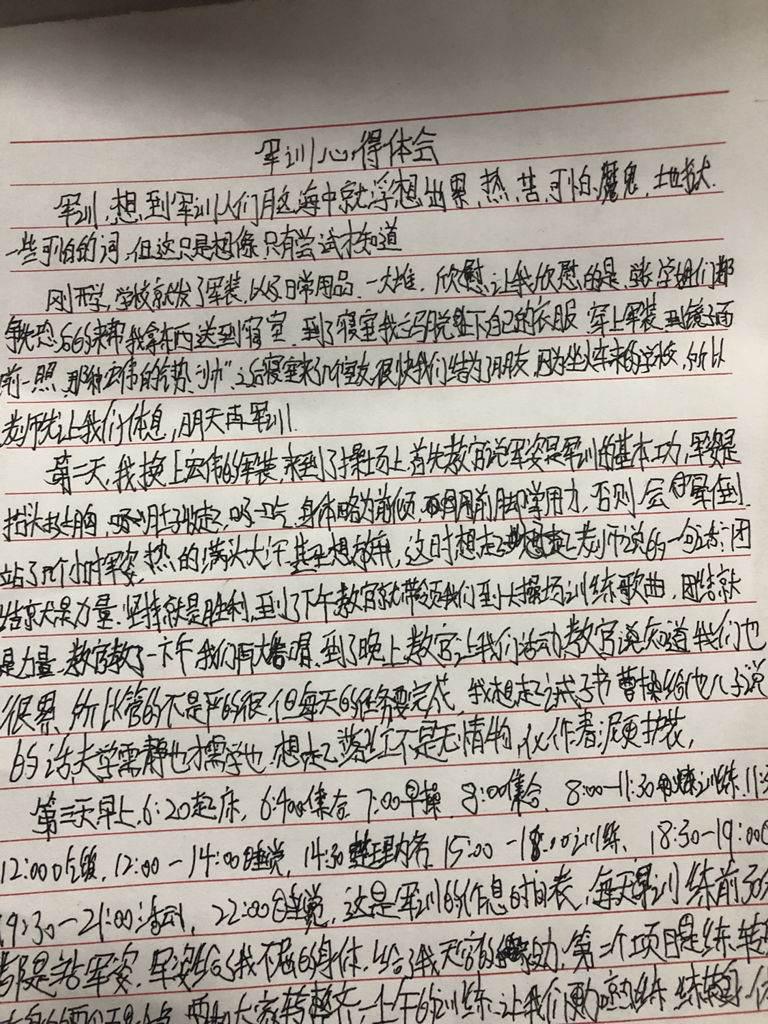 军训心得体会
军训,想到军训人们脑海中就浮想出累,热,苦,可怕,魔鬼,地狱.
一些可怕的词,但这只是想像只有尝试才知道
刚开学,学校就发了军装,以及日常用品.一大堆.欣慰,让我欣慰的是,学姐们都
争先恐后的来帮我拿东西送到寝室.到了寝室我立马脱下自己的衣服 穿上军装 到镜子面
前一照,那种宏伟的气势,"帅".之后寝室来了几个室友很快我们结为了朋友,因为坐火车来的学校,所以
老师就让我们休息,明天再军训.
第二天,我换上宏伟的军装,来到了操场上,首先教官说军姿是军训的基本功,军姿是
抬头挺胸,吸一口气,身体略为前倾,前脚掌用力,否则会晕倒.
站了几个小时军姿,热的满头大汗,这时想起老师说的一句话:团
结就是力量.坚持就是胜利.到了下午教官就带领我们到大操场训练歌曲,团结就
是力量.教官教了一下午 我们大唱.到了晚上教官让我们活动,教官说知道我们也
很累,所以管的不是严的很,但每天的任务要完成 我想起诫子书 曹操给他儿子说
的话,夫学需静也才需学也.想起落红不是无情物,化作春泥更护花,
第三天早上,6:20起床,6:40集合 7:00早操,8:00集合,8:00-11:30训练,11:3
12:00吃饭,12:00-14:00睡觉,14:30整理内务 15:00-18:00训练,18:30-19:00
19:30-21:00活动,22:00睡觉,这是军训的作息时间表,每天军训练前30分
都是站军姿.军姿给了我不屈的身体.给了我 第二个项目是练转
大家转整齐,一上午的训练,让我们更加熟练